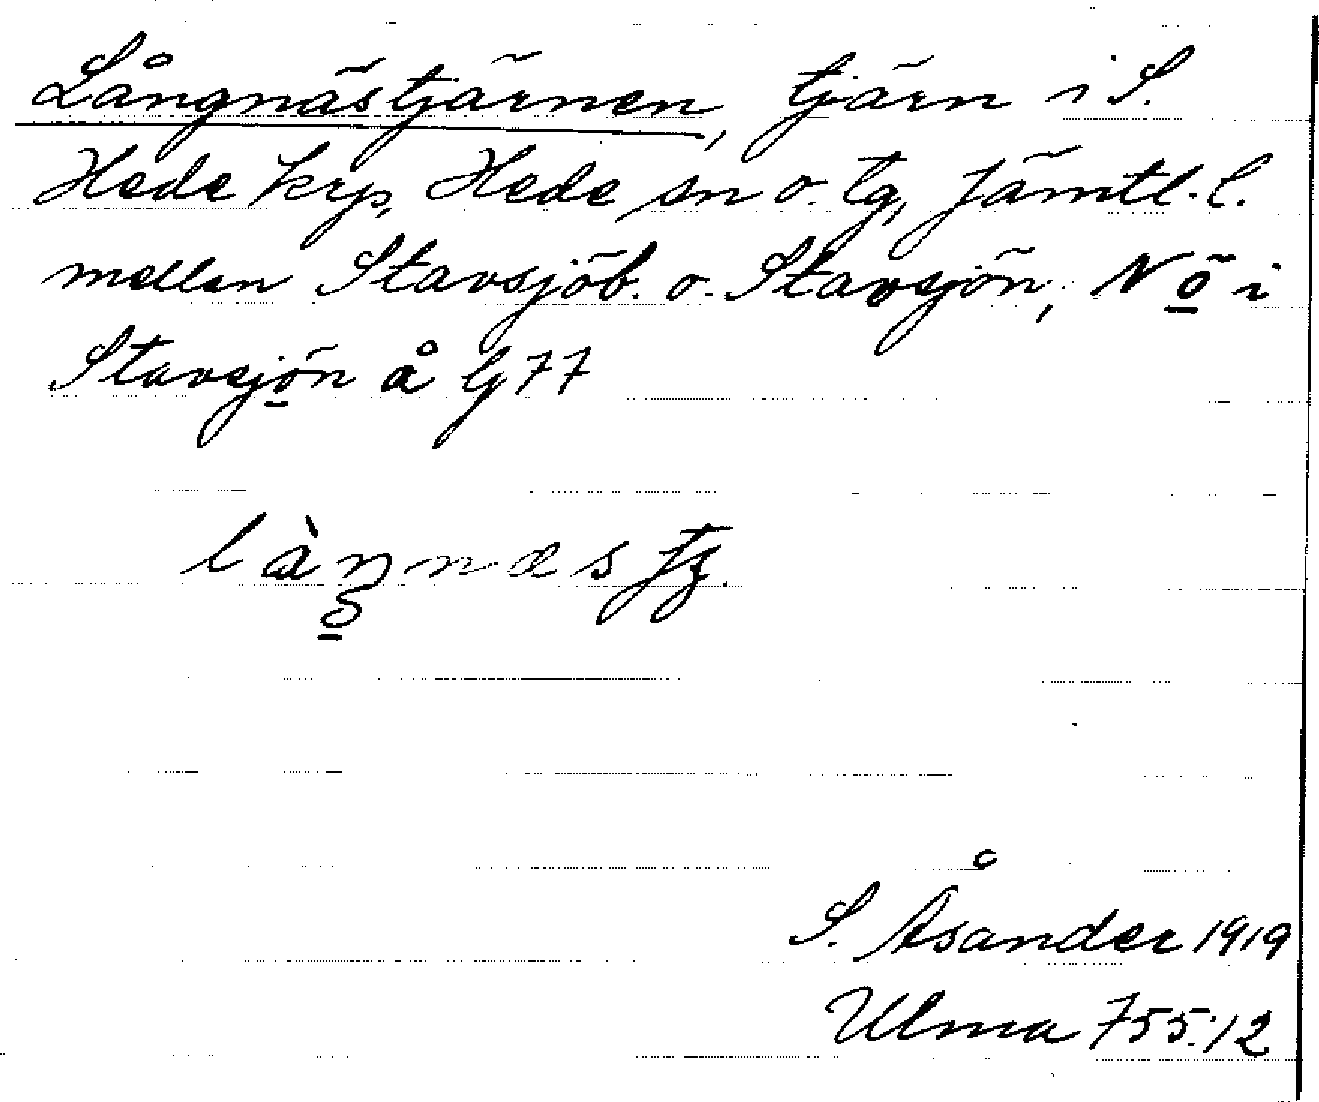 Långnästjärnen, tjärn i S.
Hede krp, Hede sn o. tg, Jämtl. l.
mellan Stavsjöb. o. Stavsjön, N ö i
Stavsjön å G 77
S. Åsander 1919
Ulma 755:12